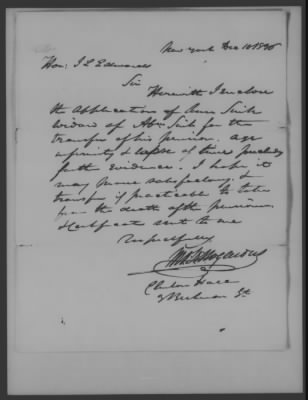 New York Dec 10 18
Hon: J L Edwards
Sir
Herewith I enclose
the application of Ann
widow of for the
transfer of his pension. age
infirmity & lapse of time preclude
further evidence. I hope it
may prove satisfactory &
transfer if practicable to take
from the death of the pensioner
& certificate sent to me
Respectfully
Clinton Hall
Beekman St